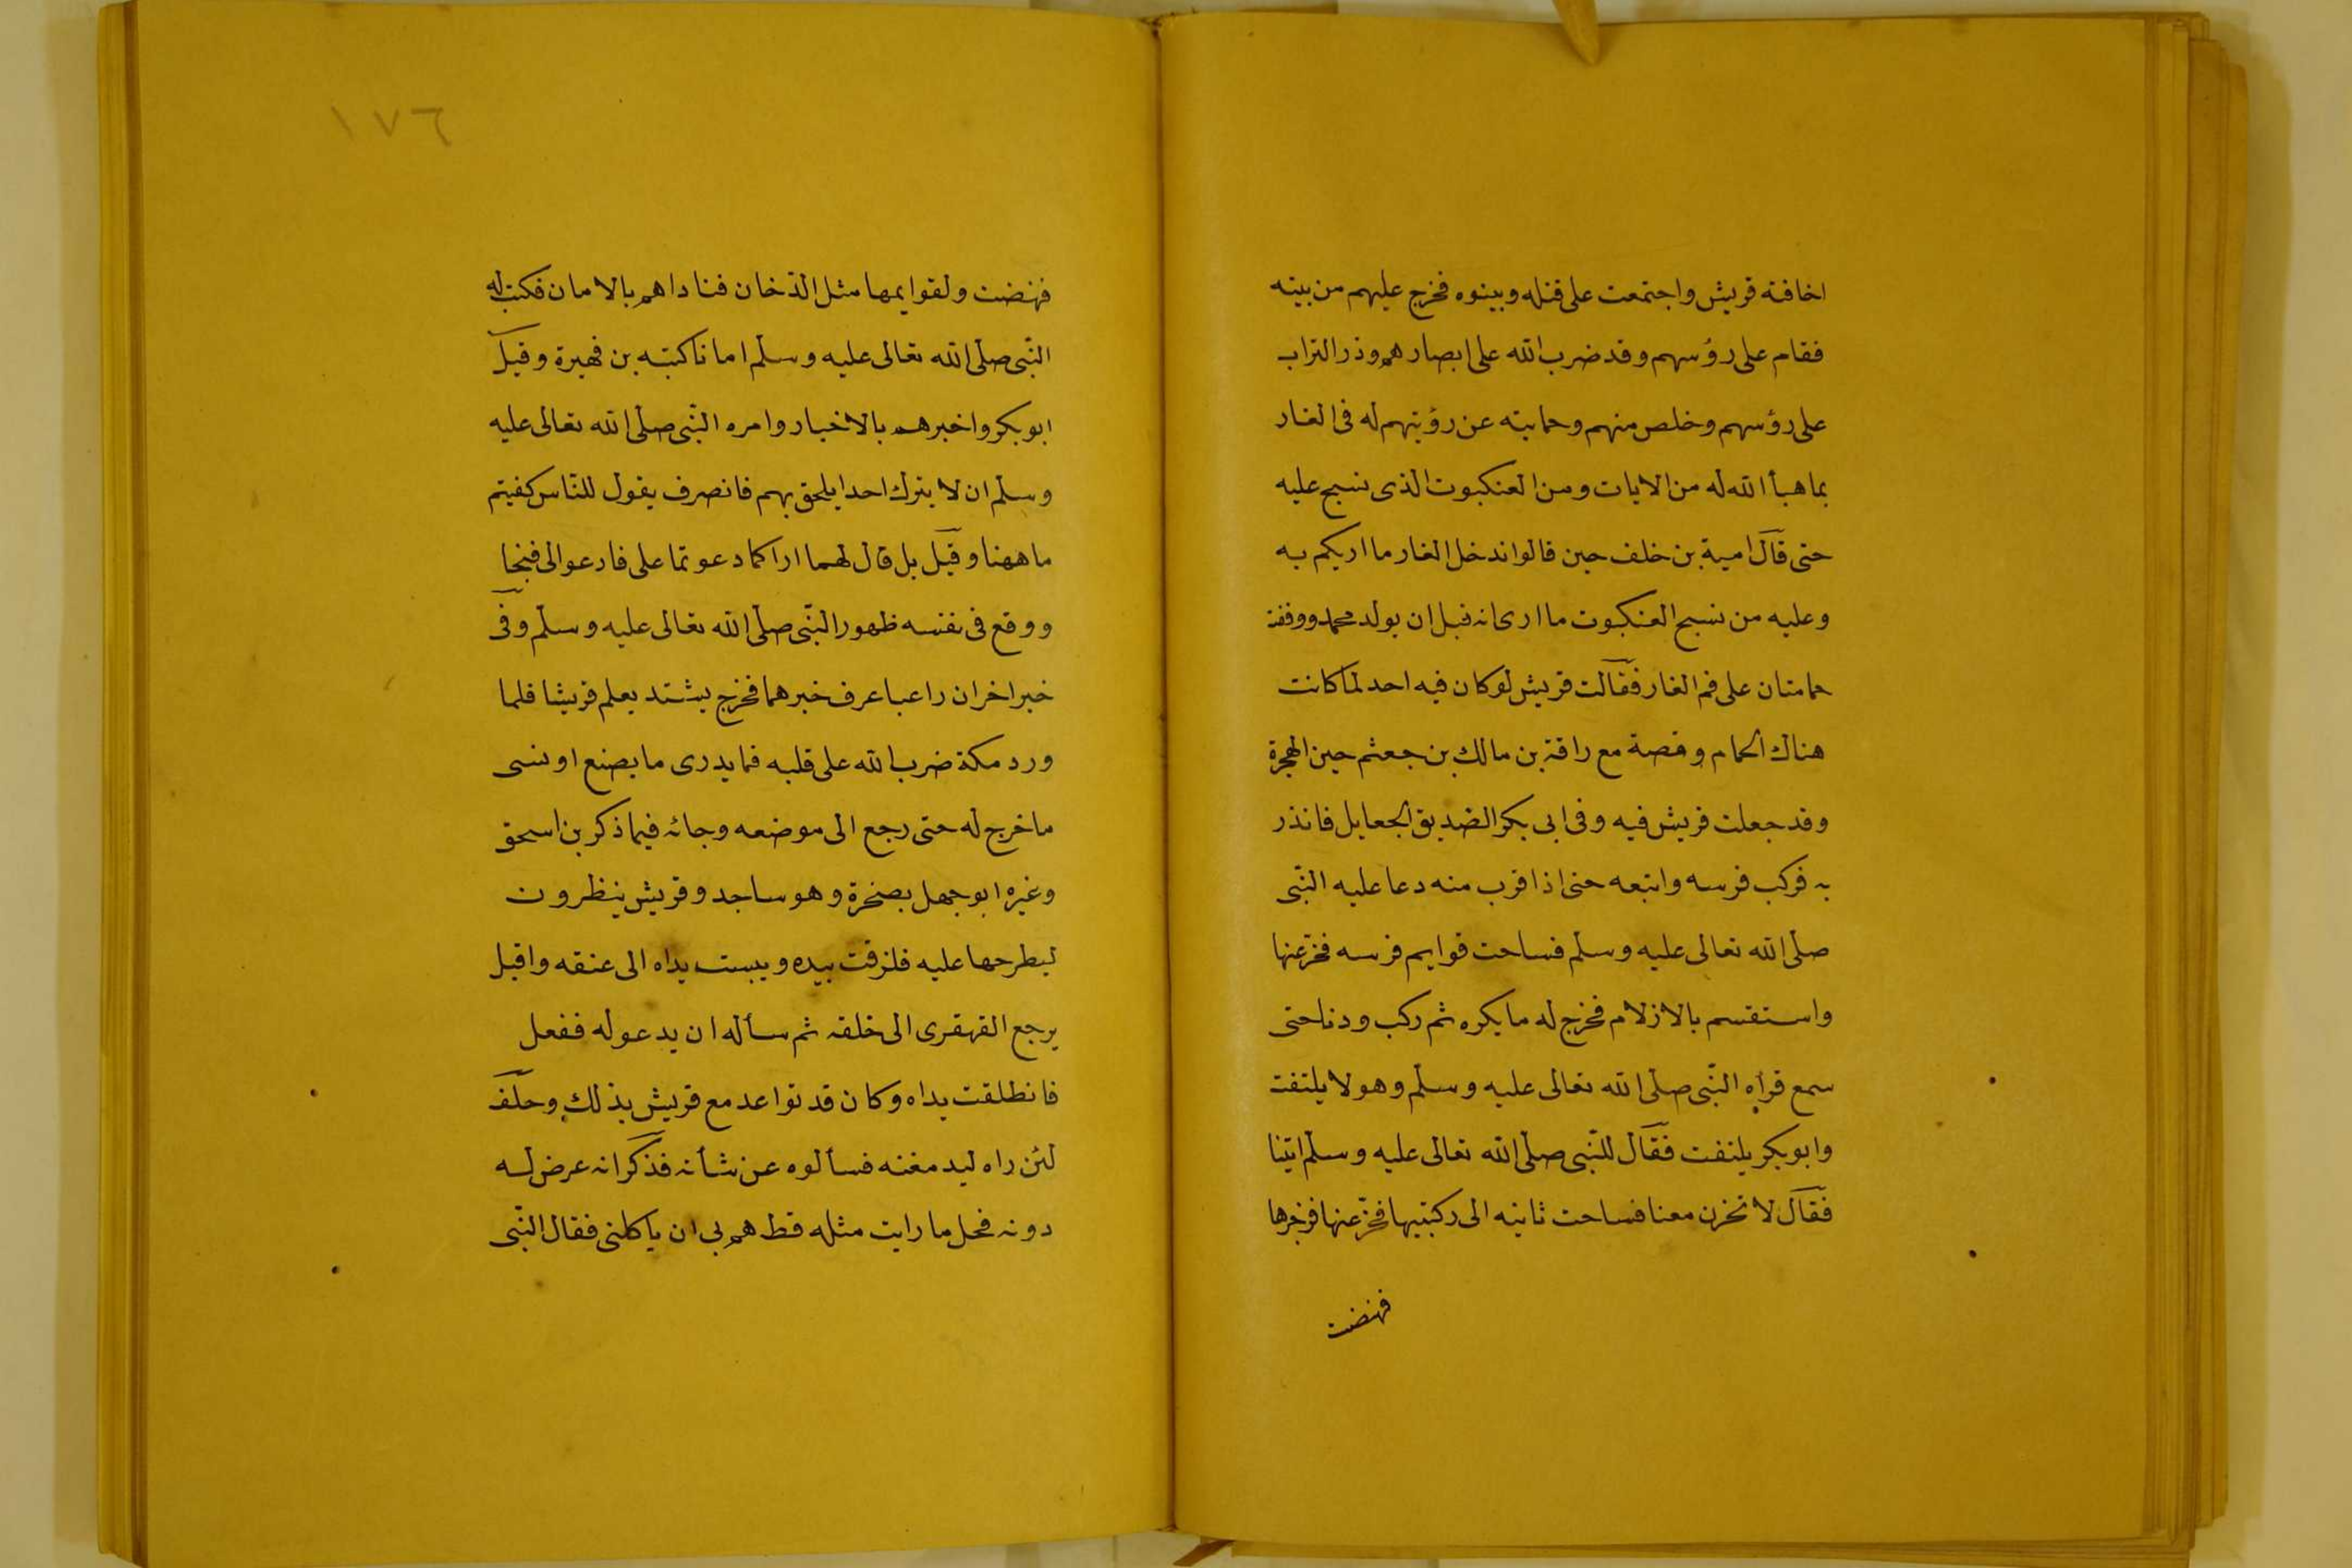 اخافته قريش واجتمعت على قتله وبيتوه فخرج عليهم من بيته
فقام على رؤسهم وقد ضرب الله على ابصارهم وذر التراب
على رؤسهم وخلص منهم وحمايته عن رؤيتهم له فى الغار
بما هيأ الله له من الايات ومن العنكبوت الذى نسج عليه
حتى قال امية بن خلف حين قالوا ندخل الغار ما اريكم به
وعليه من نسج العنكبوت ما ارى انه قبل ان يولد محمد ووقفت
حمامتان على فم الغار فقالت قريش لو كان فيه احد لما كانت
هناك الحمام وقصة مع راقة بن مالك بن جعثم حين الهجرة
وقد جعلت قريش فيه وفى ابى بكر الصديق الجعايل فانذر
به فركب فرسه واتبعه حتى اذا قرب منه دعا عليه النبى
صلى الله تعالى عليه وسلم فساحت قوايم فرسه فخر عنها
واستقسم بالازلام فخرج له ما يكره ثم ركب ودنا حتى
سمع قراه النبى صلى الله تعالى عليه وسلم وهو لا يلتفت
وابو بكر يلتفت فقال للنبى صلى الله تعالى عليه وسلم اتينا
فقال لا تحزن معنا فساحت ثانيه الى ركبتيها فخر عنها فزجرها
فهنضت
١٧٦
فهنضت ولقوايمها مثل الدخان فناداهم بالامان فكتب له
النبى صلى الله تعالى عليه وسلم امانا كتبه بن فهيرة وقيل
ابو بكر واخبرهم بالاخبار وامره النبى صلى الله تعالى عليه
وسلم ان لا يترك احدا يلحق بهم فانصرف يقول للناس كفيتم
ما ههنا وقيل بل قال لهما اراكما دعوتما على فادعوا لى فنجا
ووقع فى نفسه ظهور النبى صلى الله تعالى عليه وسلم وفى
خبر اخر ان راعيا عرف خبرهما فخرج يشتد يعلم قريشا فلما
ورد مكة ضرب الله على قلبه فما يدرى ما يصنع او نسى
ما خرج له حتى رجع الى موضعه وجائه فيما ذكر بن اسحق
وغيره ابو جهل بصخرة وهو ساجد وقريش ينظرون
ليطرحها عليه فلزقت بيده ويبست يداه الى عنقه واقبل
يرجع القهقرى الى خلفه ثم سأله ان يدعو له ففعل
فانطلقت يداه وكان قد تواعد مع قريش بذلك وحلف
لئن راه ليدمغنه فسألوه عن شأنه فذكر انه عرض له
دونه فحل ما رايت مثله قط هم بى ان ياكلنى فقال النبى